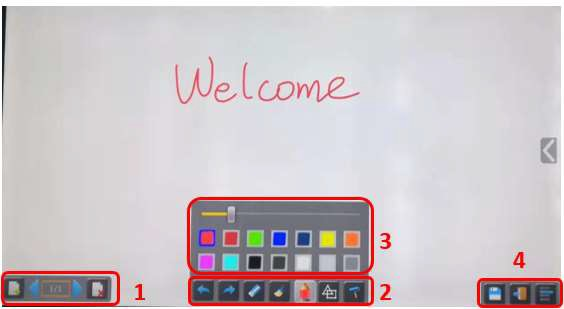 Welcome
3
1/1
1
2
4